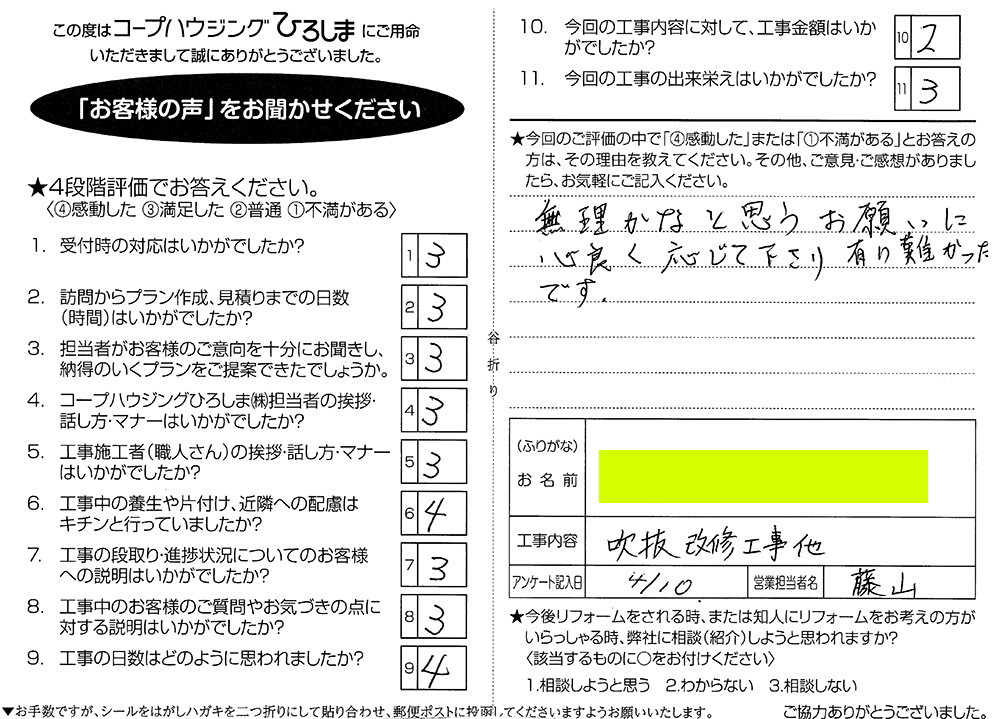 この度はコープハウジングひろしまにご用命
いただきまして誠にありがとうございました。
「お客様の声」をお聞かせください
★4段階評価でお答えください。
〈④感動した ③満足した ②普通 ①不満がある〉
1. 受付時の対応はいかがでしたか?
1 3
2. 訪問からプラン作成、見積りまでの日数
(時間)はいかがでしたか?
2 3
3. 担当者がお客様のご意向を十分にお聞きし、
納得のいくプランをご提案できたでしょうか。
3 3
4. コープハウジングひろしま㈱担当者の挨拶・
話し方・マナーはいかがでしたか?
4 3
5. 工事施工者(職人さん)の挨拶・話し方・マナー
はいかがでしたか?
5 3
6. 工事中の養生や片付け、近隣への配慮は
キチンと行っていましたか?
6 4
7. 工事の段取り・進捗状況についてのお客様
への説明はいかがでしたか?
7 3
8. 工事中のお客様のご質問やお気づきの点に
対する説明はいかがでしたか?
8 3
9. 工事の日数はどのように思われましたか?
9 4
谷折り
10. 今回の工事内容に対して、工事金額はいか
がでしたか?
10 2
11. 今回の工事の出来栄えはいかがでしたか?
11 3
★今回のご評価の中で「④感動した」または「①不満がある」とお答えの
方は、その理由を教えてください。その他、ご意見・ご感想がありまし
たら、お気軽にご記入ください。
無理かなと思うお願いに
心良く応じて下さり有り難かった
です.
(ふりがな)
お名前
工事内容 吹抜改修工事他
アンケート記入日 4/10. 営業担当者名 藤山
★今後リフォームをされる時、または知人にリフォームをお考えの方が
いらっしゃる時、弊社に相談(紹介)しようと思われますか?
〈該当するものに○をお付けください〉
1.相談しようと思う 2.わからない 3.相談しない
▼お手数ですが、シールをはがしハガキを二つ折りにして貼り合わせ、郵便ポストに投函してくださいますようお願いいたします。
ご協力ありがとうございました。